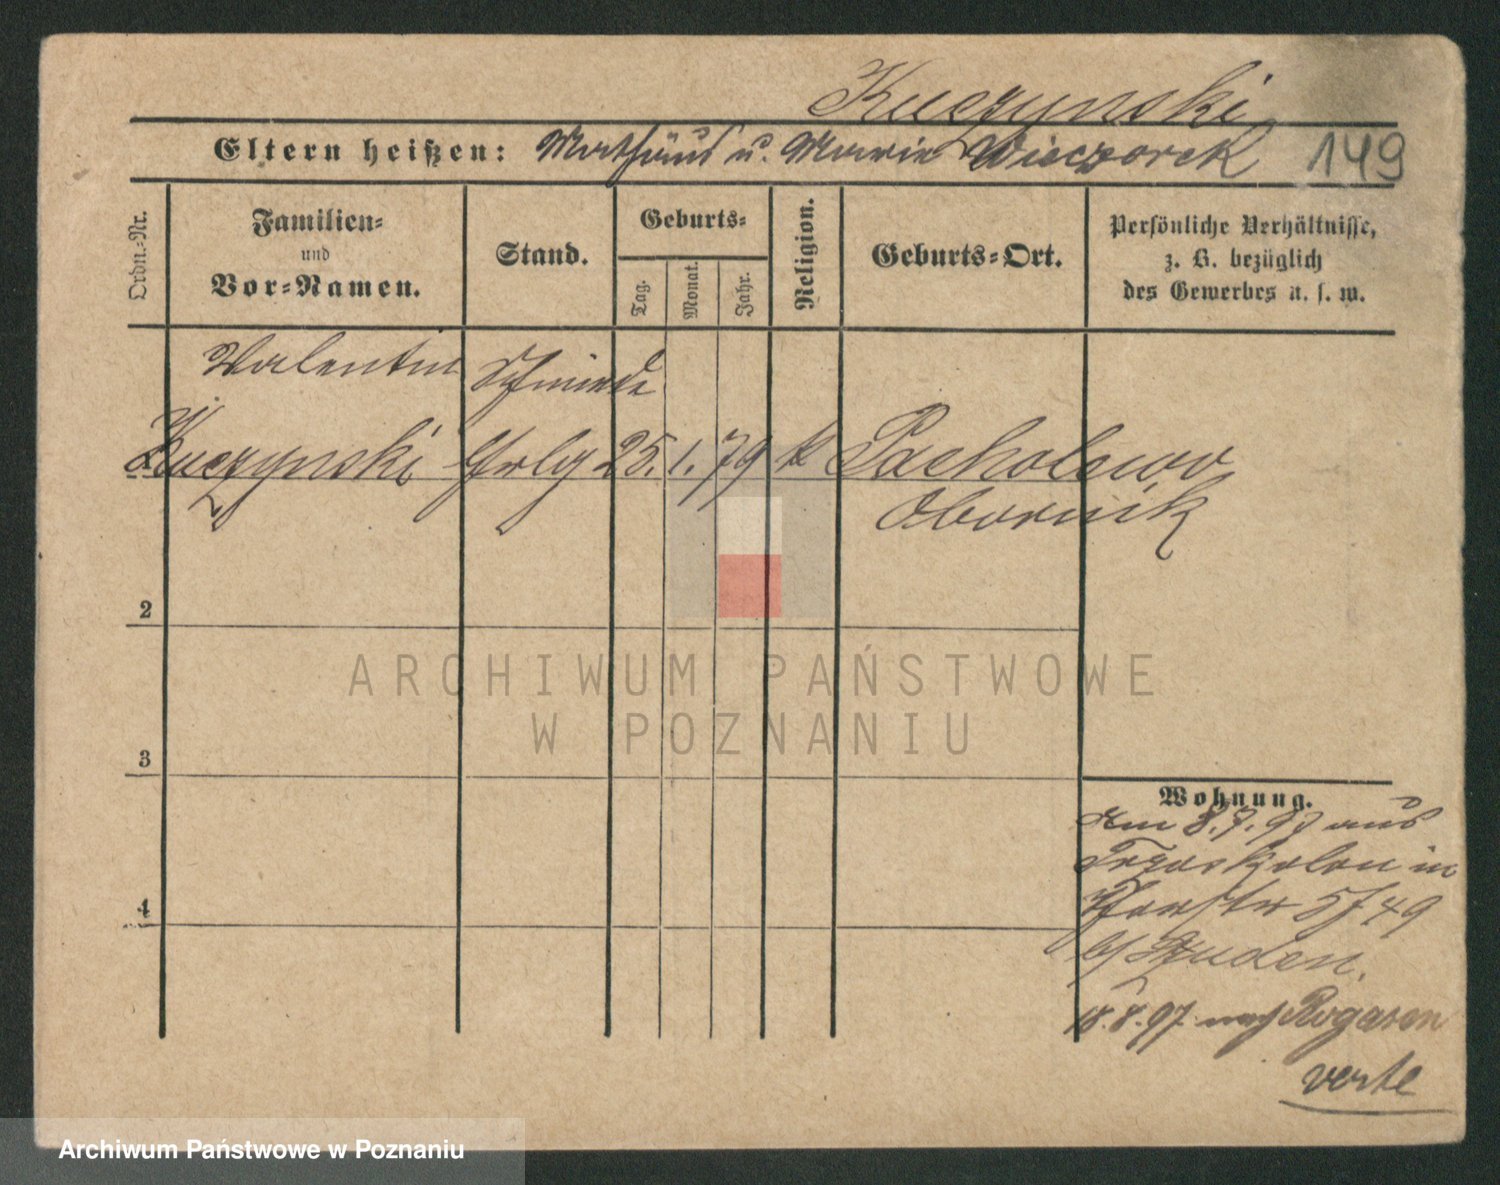 Kuczynski
Eltern heißen: Mathäus u. Marie Wieczorek 149
Ordn.-Nr.
Familien-
und
Vor-Namen.
Stand.
Geburts-
Tag.
Monat.
Jahr.
Religion.
Geburts-Ort.
Persönliche Verhältnisse,
z. B. bezüglich
des Gewerbes u. s. w.
Valentin Schmiede
Kuczynski 25. 1. 79 k Pacholewo
Obornik
2
ARCHIWUM PAŃSTWOWE
W POZNANIU
3
Wohnung.
Am 8.7.97 aus
in
4
49
b/
18.8.97 nach Rogasen
verte
Archiwum Państwowe w Poznaniu